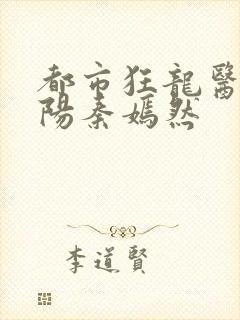 都市狂龍醫
陽秦嫣然
李道賢